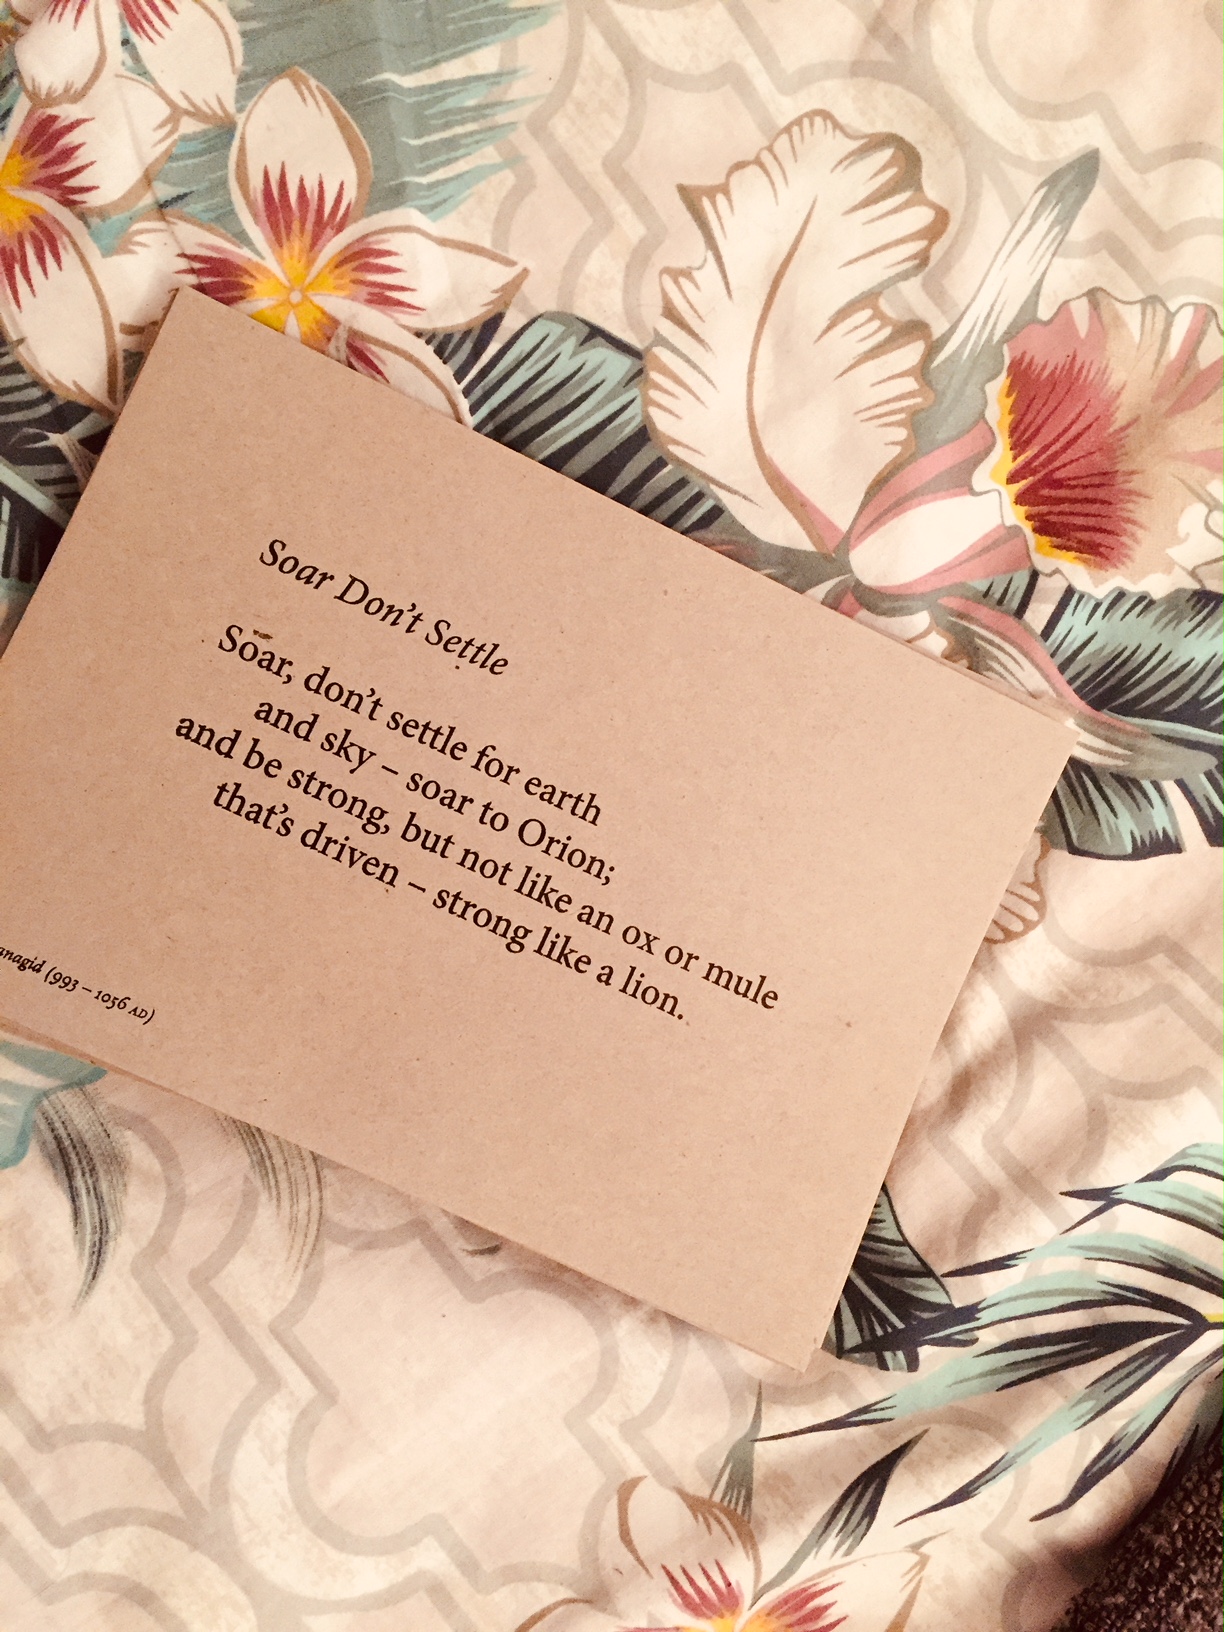 Soar Don't Settle
Soar, don't settle for earth
and sky – soar to Orion;
and be strong, but not like an ox or mule
that's driven – strong like a lion.
(993 – 1056 AD)